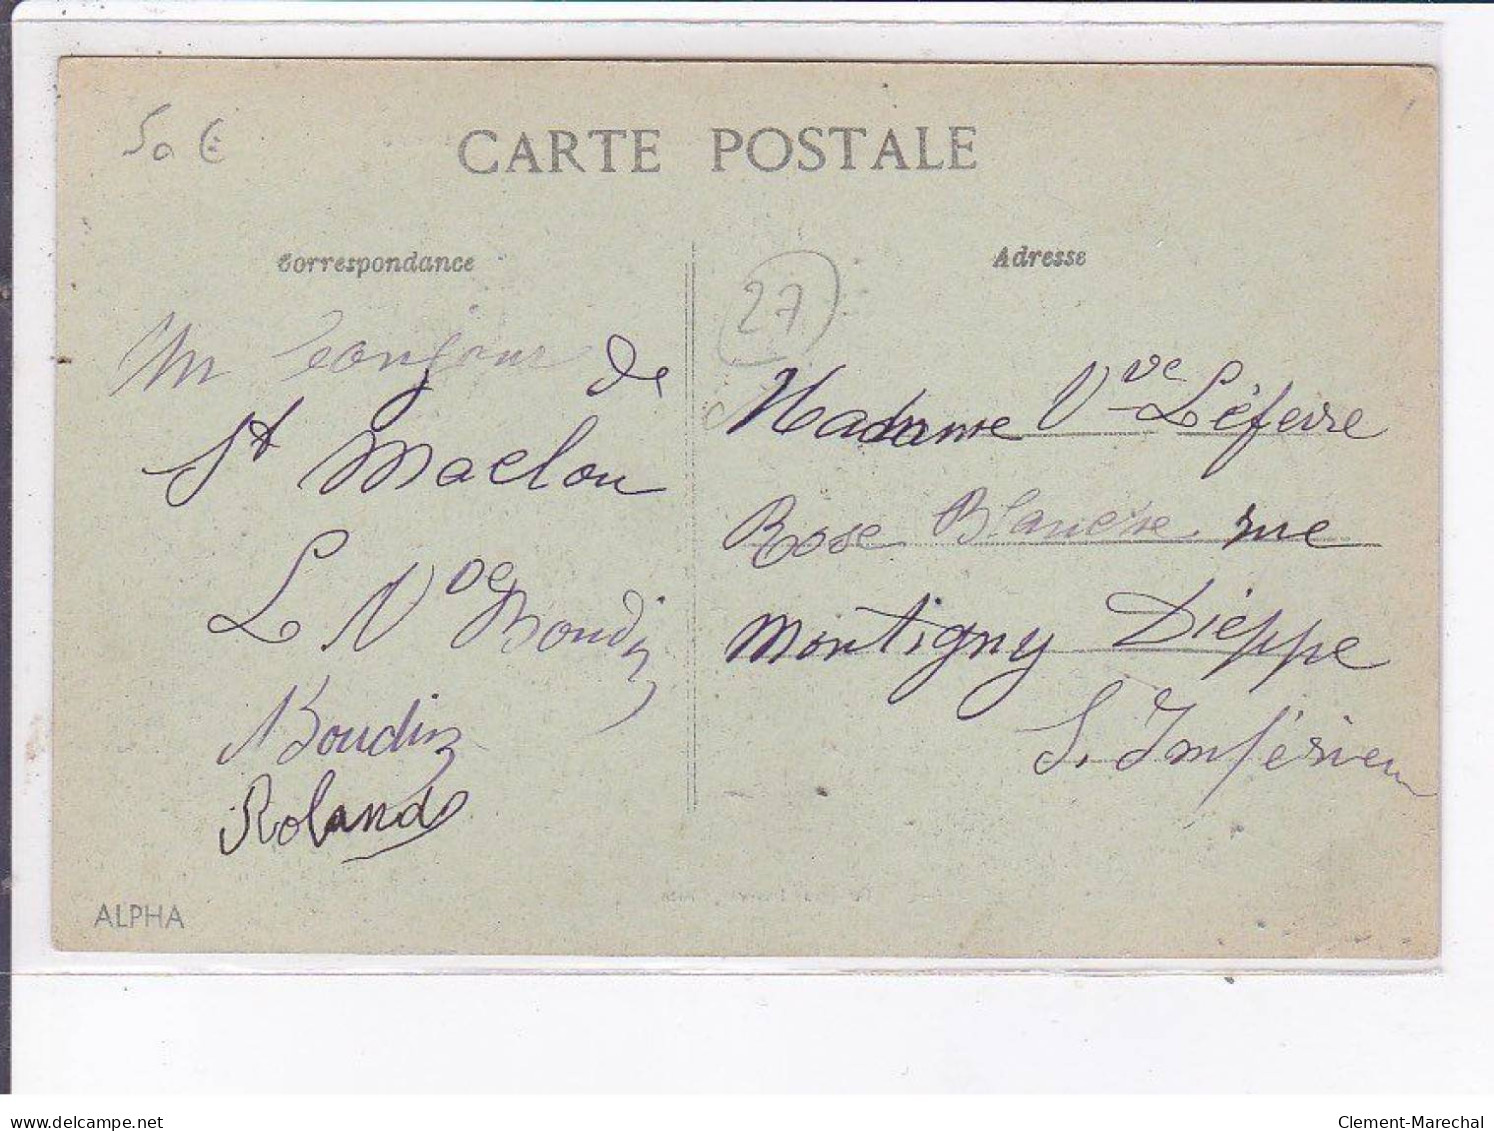 50 €
CARTE POSTALE
Correspondance
Un bonjour de
St Maclou
L Vve Boudin
Boudin
Roland
ALPHA
Adresse
27
Madame Vve Léfevre
Rose Blanche rue
Montigny Dieppe
S. Inférieu
delcampe.net
Clement-Marechal